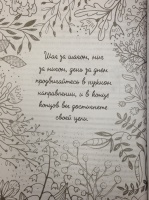 Шаг за шагом, миг
за мигом, день за днем
продвигайтесь в нужном
направлении, и в конце
концов вы достигнете
своей цели.